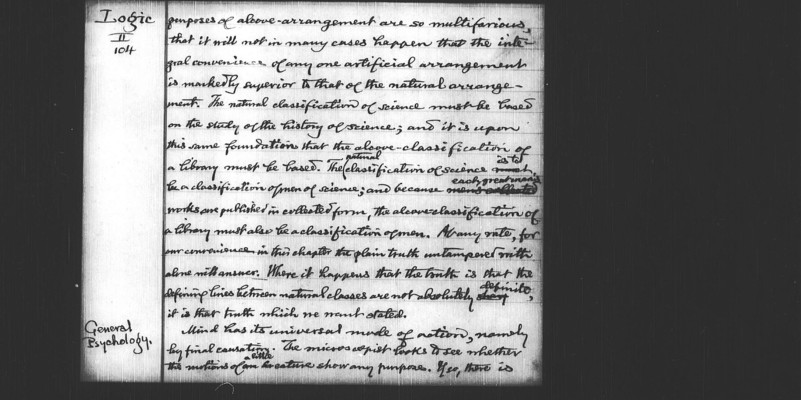 Logic
II
104
purposes of alcove-arrangement are so multifarious,
that it will not in many cases happen that the inte-
gral convenience of any one artificial arrangement
is markedly superior to that of the natural arrange-
ment. The natural classification of science must be based
on the study of the history of science; and it is upon
this same foundation that the alcove-classification of
a library must be based. The natural classification of science must, is to
be a classification of men of science; and because men's collected each great man's
works are published in collected form, the alcove-classification of
a library must also be a classification of men. At any rate, for
our convenience in this chapter the plain truth untampered with
alone will answer. Where it happens that the truth is that the
defining lines between natural classes are not absolutely sharp definite,
it is that truth which we want stated.
General
Psychology.
Mind has its universal mode of action, namely
by final causation. The microscopist looks to see whether
the motions of a little creature show any purpose. If so, there is